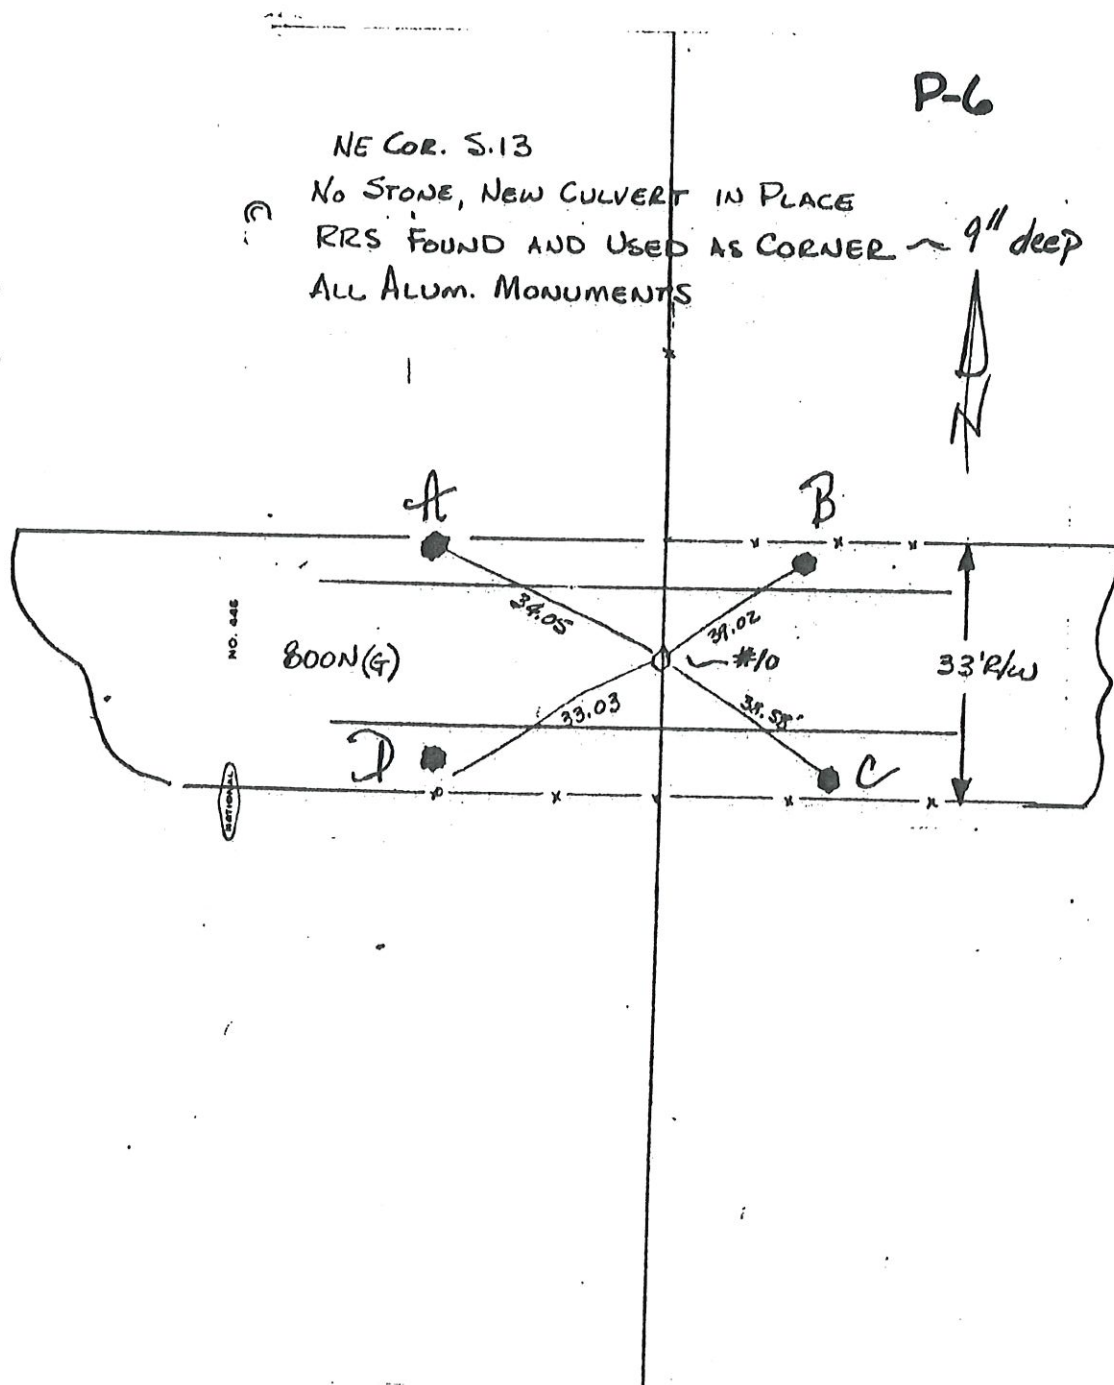 P-6
NE COR. S.13
NO STONE, NEW CULVERT IN PLACE
RRS FOUND AND USED AS CORNER ~ 9" deep
ALL ALUM. MONUMENTS
N
A
B
34.05
39.02
NO. 446
800N(G)
#10
33'R/W
33.03
D
C
NATIONAL